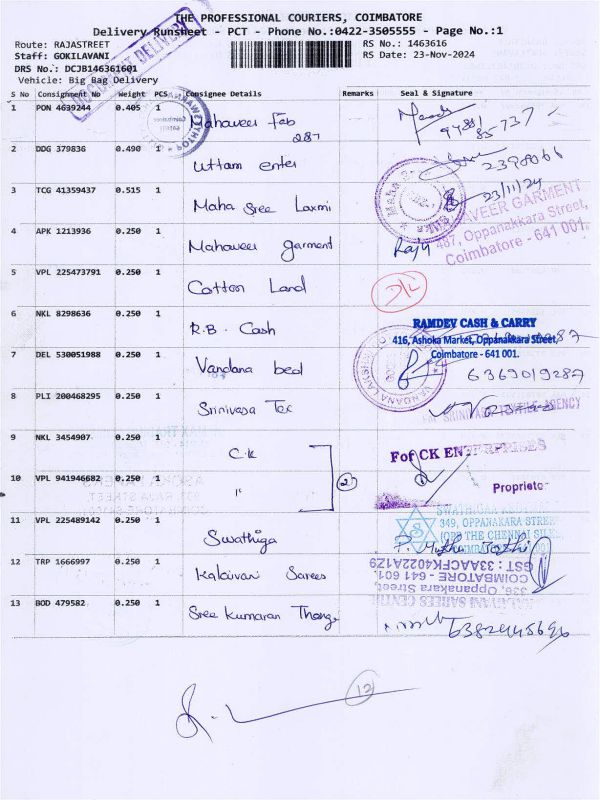 THE PROFESSIONAL COURIERS, COIMBATORE
Delivery Runsheet - PCT - Phone No.:0422-3505555 - Page No.:1
Route: RAJASTREET RS No.: 1463616
Staff: GOKILAVANI RS Date: 23-Nov-2024
DRS No.: DCJB146361601
Vehicle: Big Bag Delivery
DELIVERY
S No Consignment No Weight PCS Consignee Details Remarks Seal & Signature
1 PON 4639244 0.405 1 Mahaveer Fab
287
2 DDG 379836 0.490 1 Uttam enter
3 TCG 41359437 0.515 1 Maha Sree Laxmi 23/11/24
MAHAVEER GARMENT
487, Oppanakkara Street,
Coimbatore - 641 001.
4 APK 1213936 0.250 1 Mahaveer garment Raju
5 VPL 225473791 0.250 1 Cotton Land D/L
6 NKL 8298636 0.250 1 R.B. Cash
RAMDEV CASH & CARRY
416, Ashoka Market, Oppanakkara Street,
Coimbatore - 641 001.
7 DEL 530051988 0.250 1 Vandana bed 6369019287
8 PLI 200468295 0.250 1 Srinivasa Tex
TEXTILE AGENCY
9 NKL 3454907 0.250 1 C.K
For CK ENTERPRISES
10 VPL 941946682 0.250 1 " 2
Proprietor
11 VPL 225489142 0.250 1 Swathiga
349, OPPANAKARA STREET
(OPP THE CHENNAI SILKS
12 TRP 1666997 0.250 1 Kalaivani Sarees
GST : 33AACFK4022A1Z9
COIMBATORE - 641 601
336, Oppanakara Street,
KALAIVANI SAREES CENTRE
13 BOD 479582 0.250 1 Sree Kumaran Thanga 6382445696
12